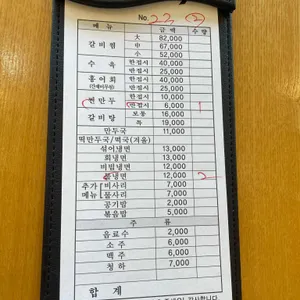 No. 23 (2)
메 뉴 금 액 수 량
갈비찜 大 82,000
中 67,000
小 52,000
수 육 한접시 40,000
반접시 25,000
홍어회 한접시 40,000
(간재미무침) 반접시 25,000
찐만두 한접시 10,000
반접시 6,000 1
갈비탕 보통 16,000
특 19,000
만두국 11,000
떡만두국/떡국(겨울)
섞어냉면 13,000
회냉면 13,000
비빔냉면 12,000
물냉면 12,000 2
추가 비사리 7,000
메뉴 물사리 7,000
공기밥 2,000
볶음밥 5,000
주 류
음료수 2,000
소 주
맥 주
청 하 7,000
합 계